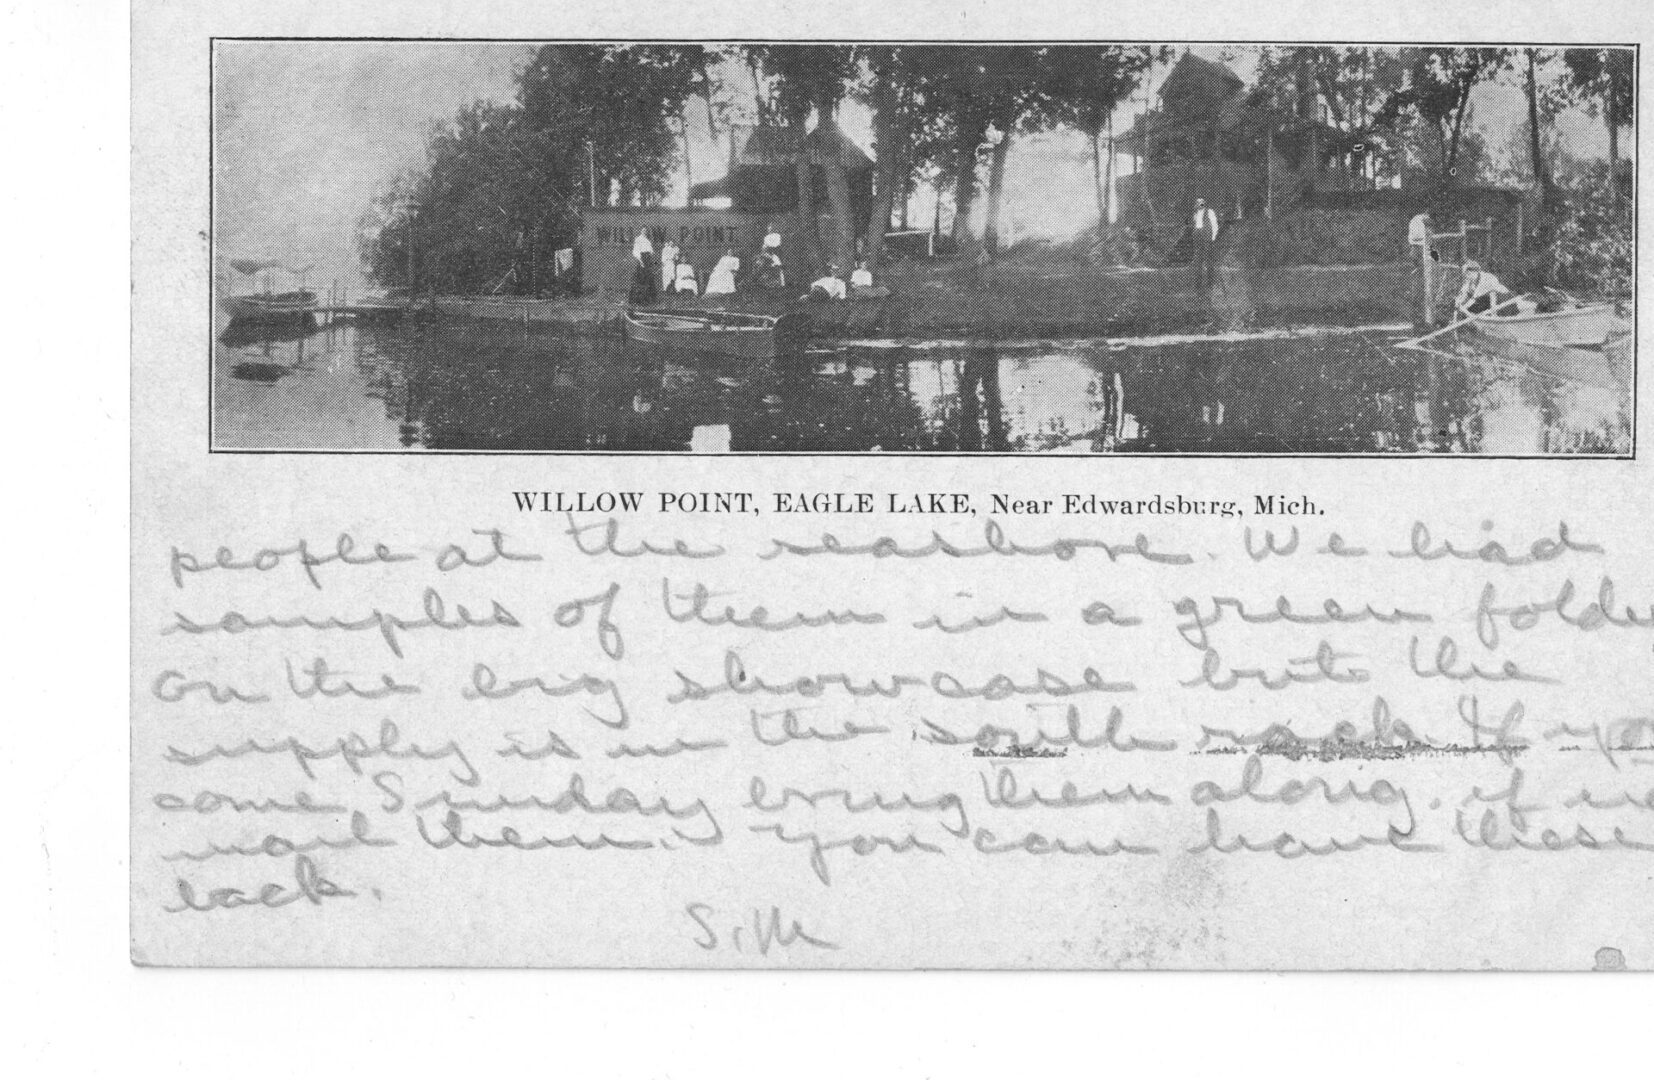 WILLOW POINT
WILLOW POINT, EAGLE LAKE, Near Edwardsburg, Mich.
people at the seashore. We had
samples of them in a green folder
on the big showcase but the
supply is in the south rack. If you
come Sunday bring them along. if not
mail them. You can have these
back.
S.M